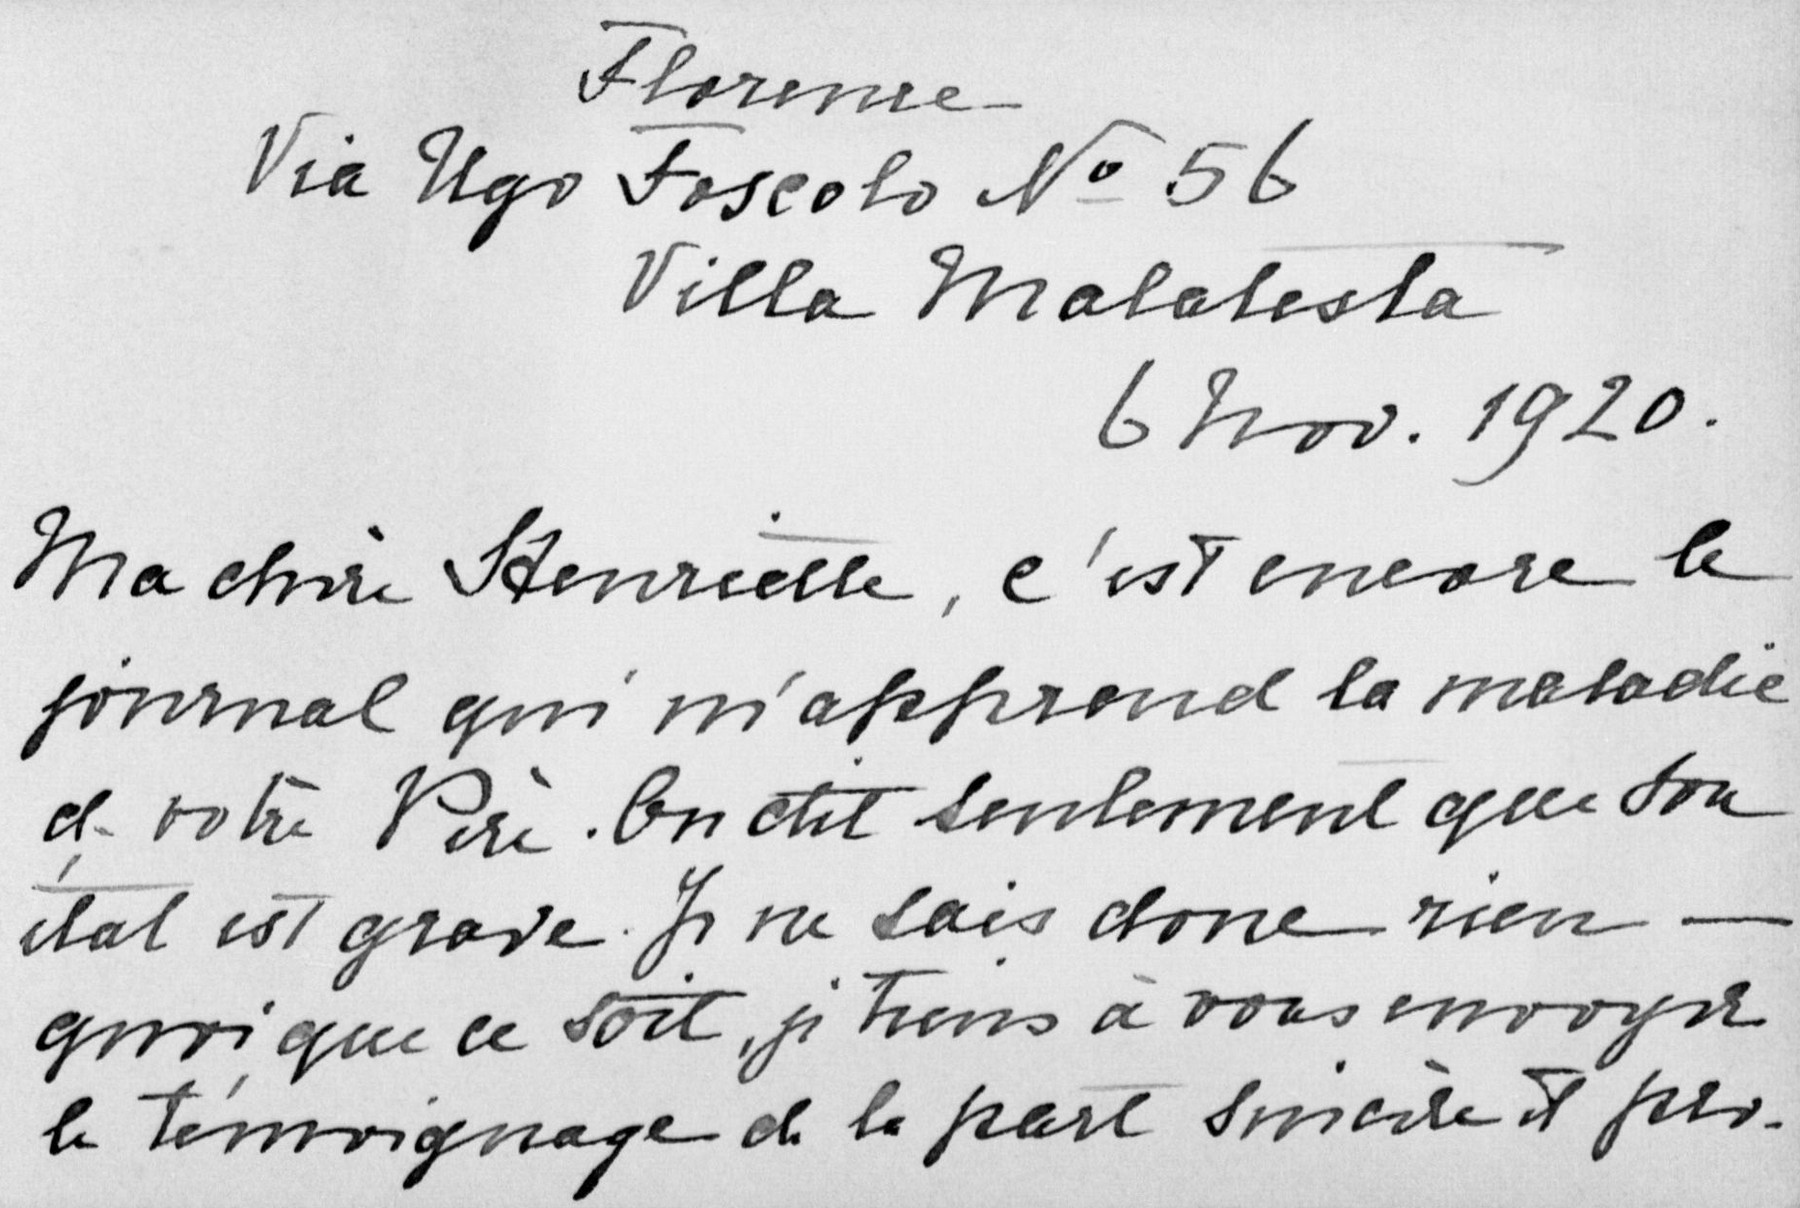 Florence
Via Ugo Foscolo Nº 56
Villa Malatesta
6 Nov. 1920.
Ma chère Henriette, c'est encore le
journal qui m'apprend la maladie
de votre Père. On dit seulement que son
état est grave. Je ne sais donc rien —
quoique ce soit, je tiens à vous envoyer
le témoignage de la part sincère et pro-